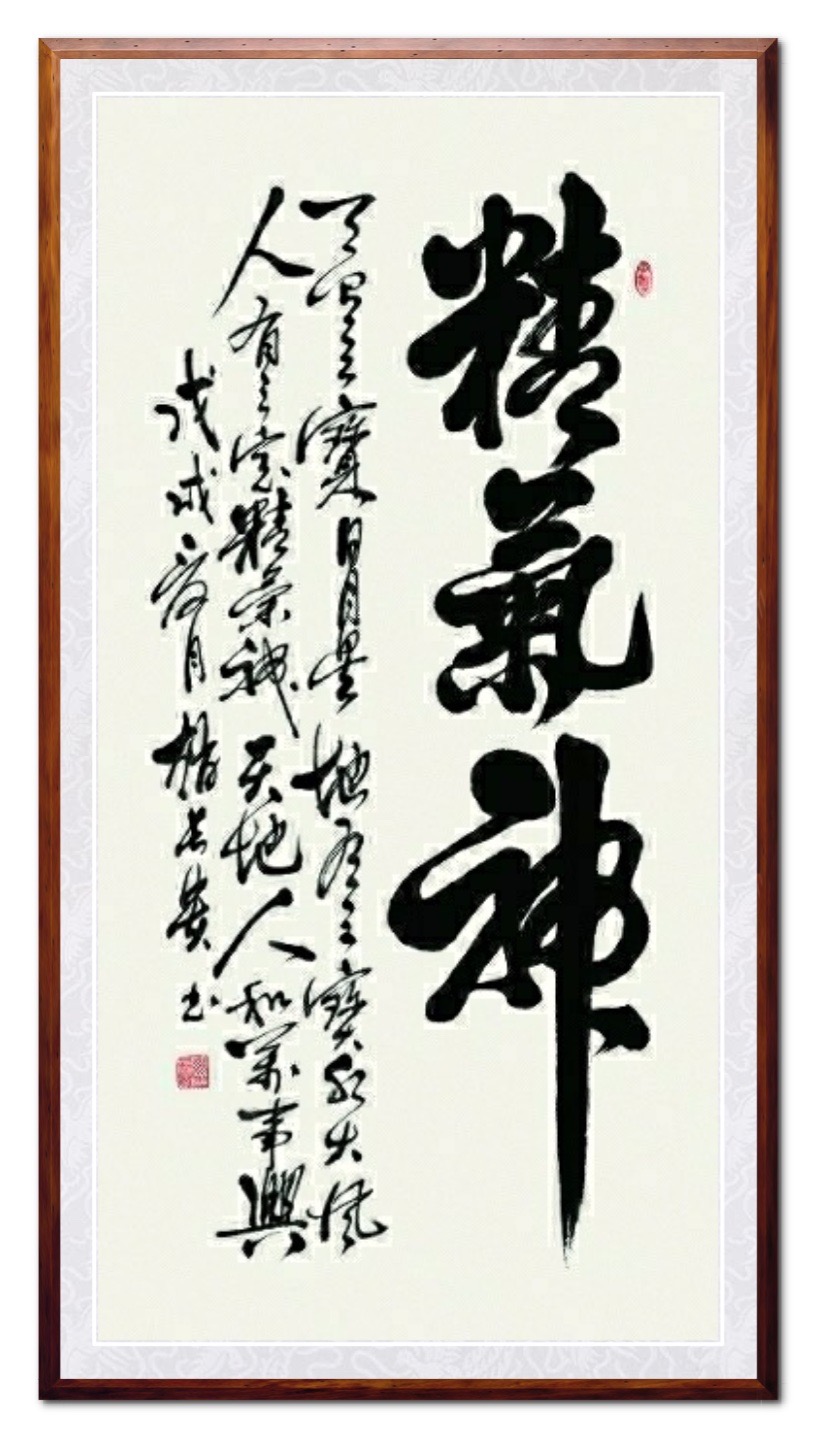 精氣神
天有三寶日月星地有三寶水火風
人有三宝精氣神天地人和萬事興
戊戌夏月 书